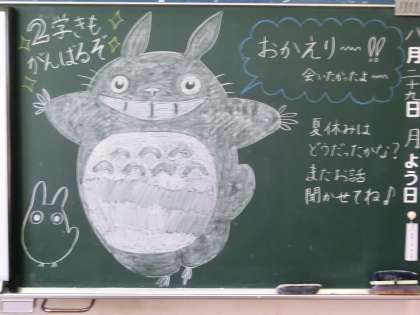 2学きも
がんばるぞ
おかえり〜!!
会いたかったよ〜
夏休みは
どうだったかな?
またお話
聞かせてね♪
八月二十九日 月よう日